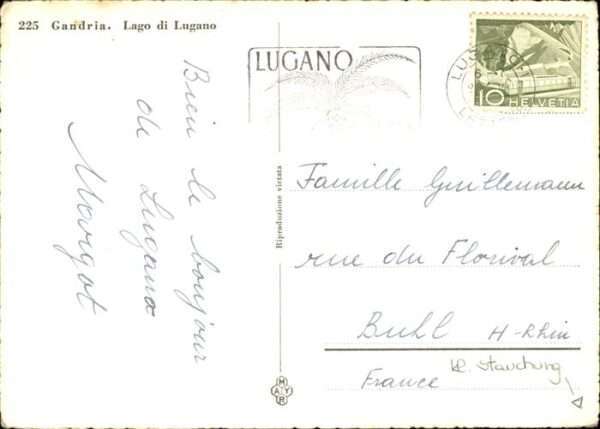 225 Gandria. Lago di Lugano
LUGANO
10 HELVETIA
Bien le bonjour
de Lugano
Margot
Riproduzione vietata
Famille Guillemann
rue du Florival
Buhl H-Rhin
France
kl. Stauchung
MAYR